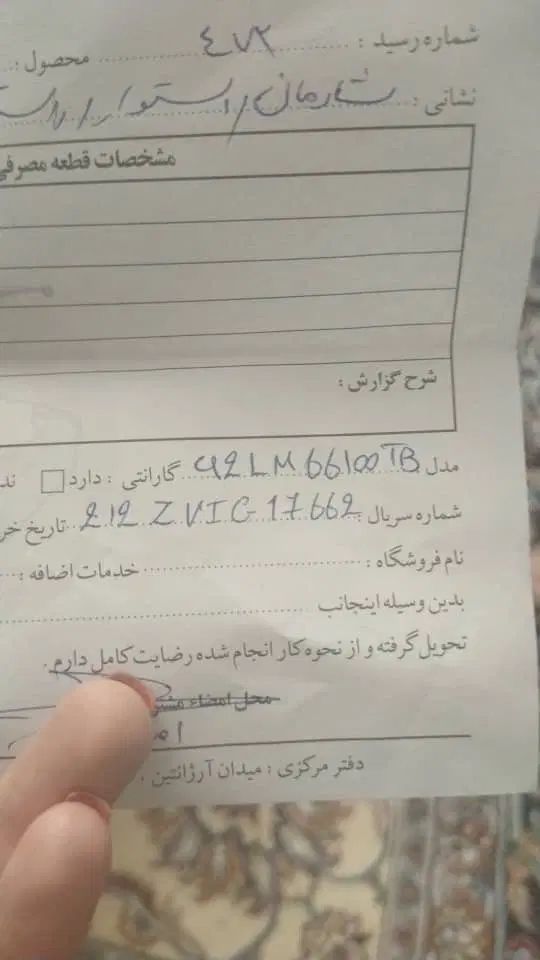 شماره رسید : ٤٧٢ محصول :
نشانی :
مشخصات قطعه مصرفی
شرح گزارش :
مدل 42LM66100TB گارانتی : دارد
شماره سریال : 212ZVIG17662 تاریخ خر
نام فروشگاه : خدمات اضافه :
بدین وسیله اینجانب
تحویل گرفته و از نحوه کار انجام شده رضایت کامل دارم .
محل امضاء
دفتر مرکزی : میدان آرژانتین ،